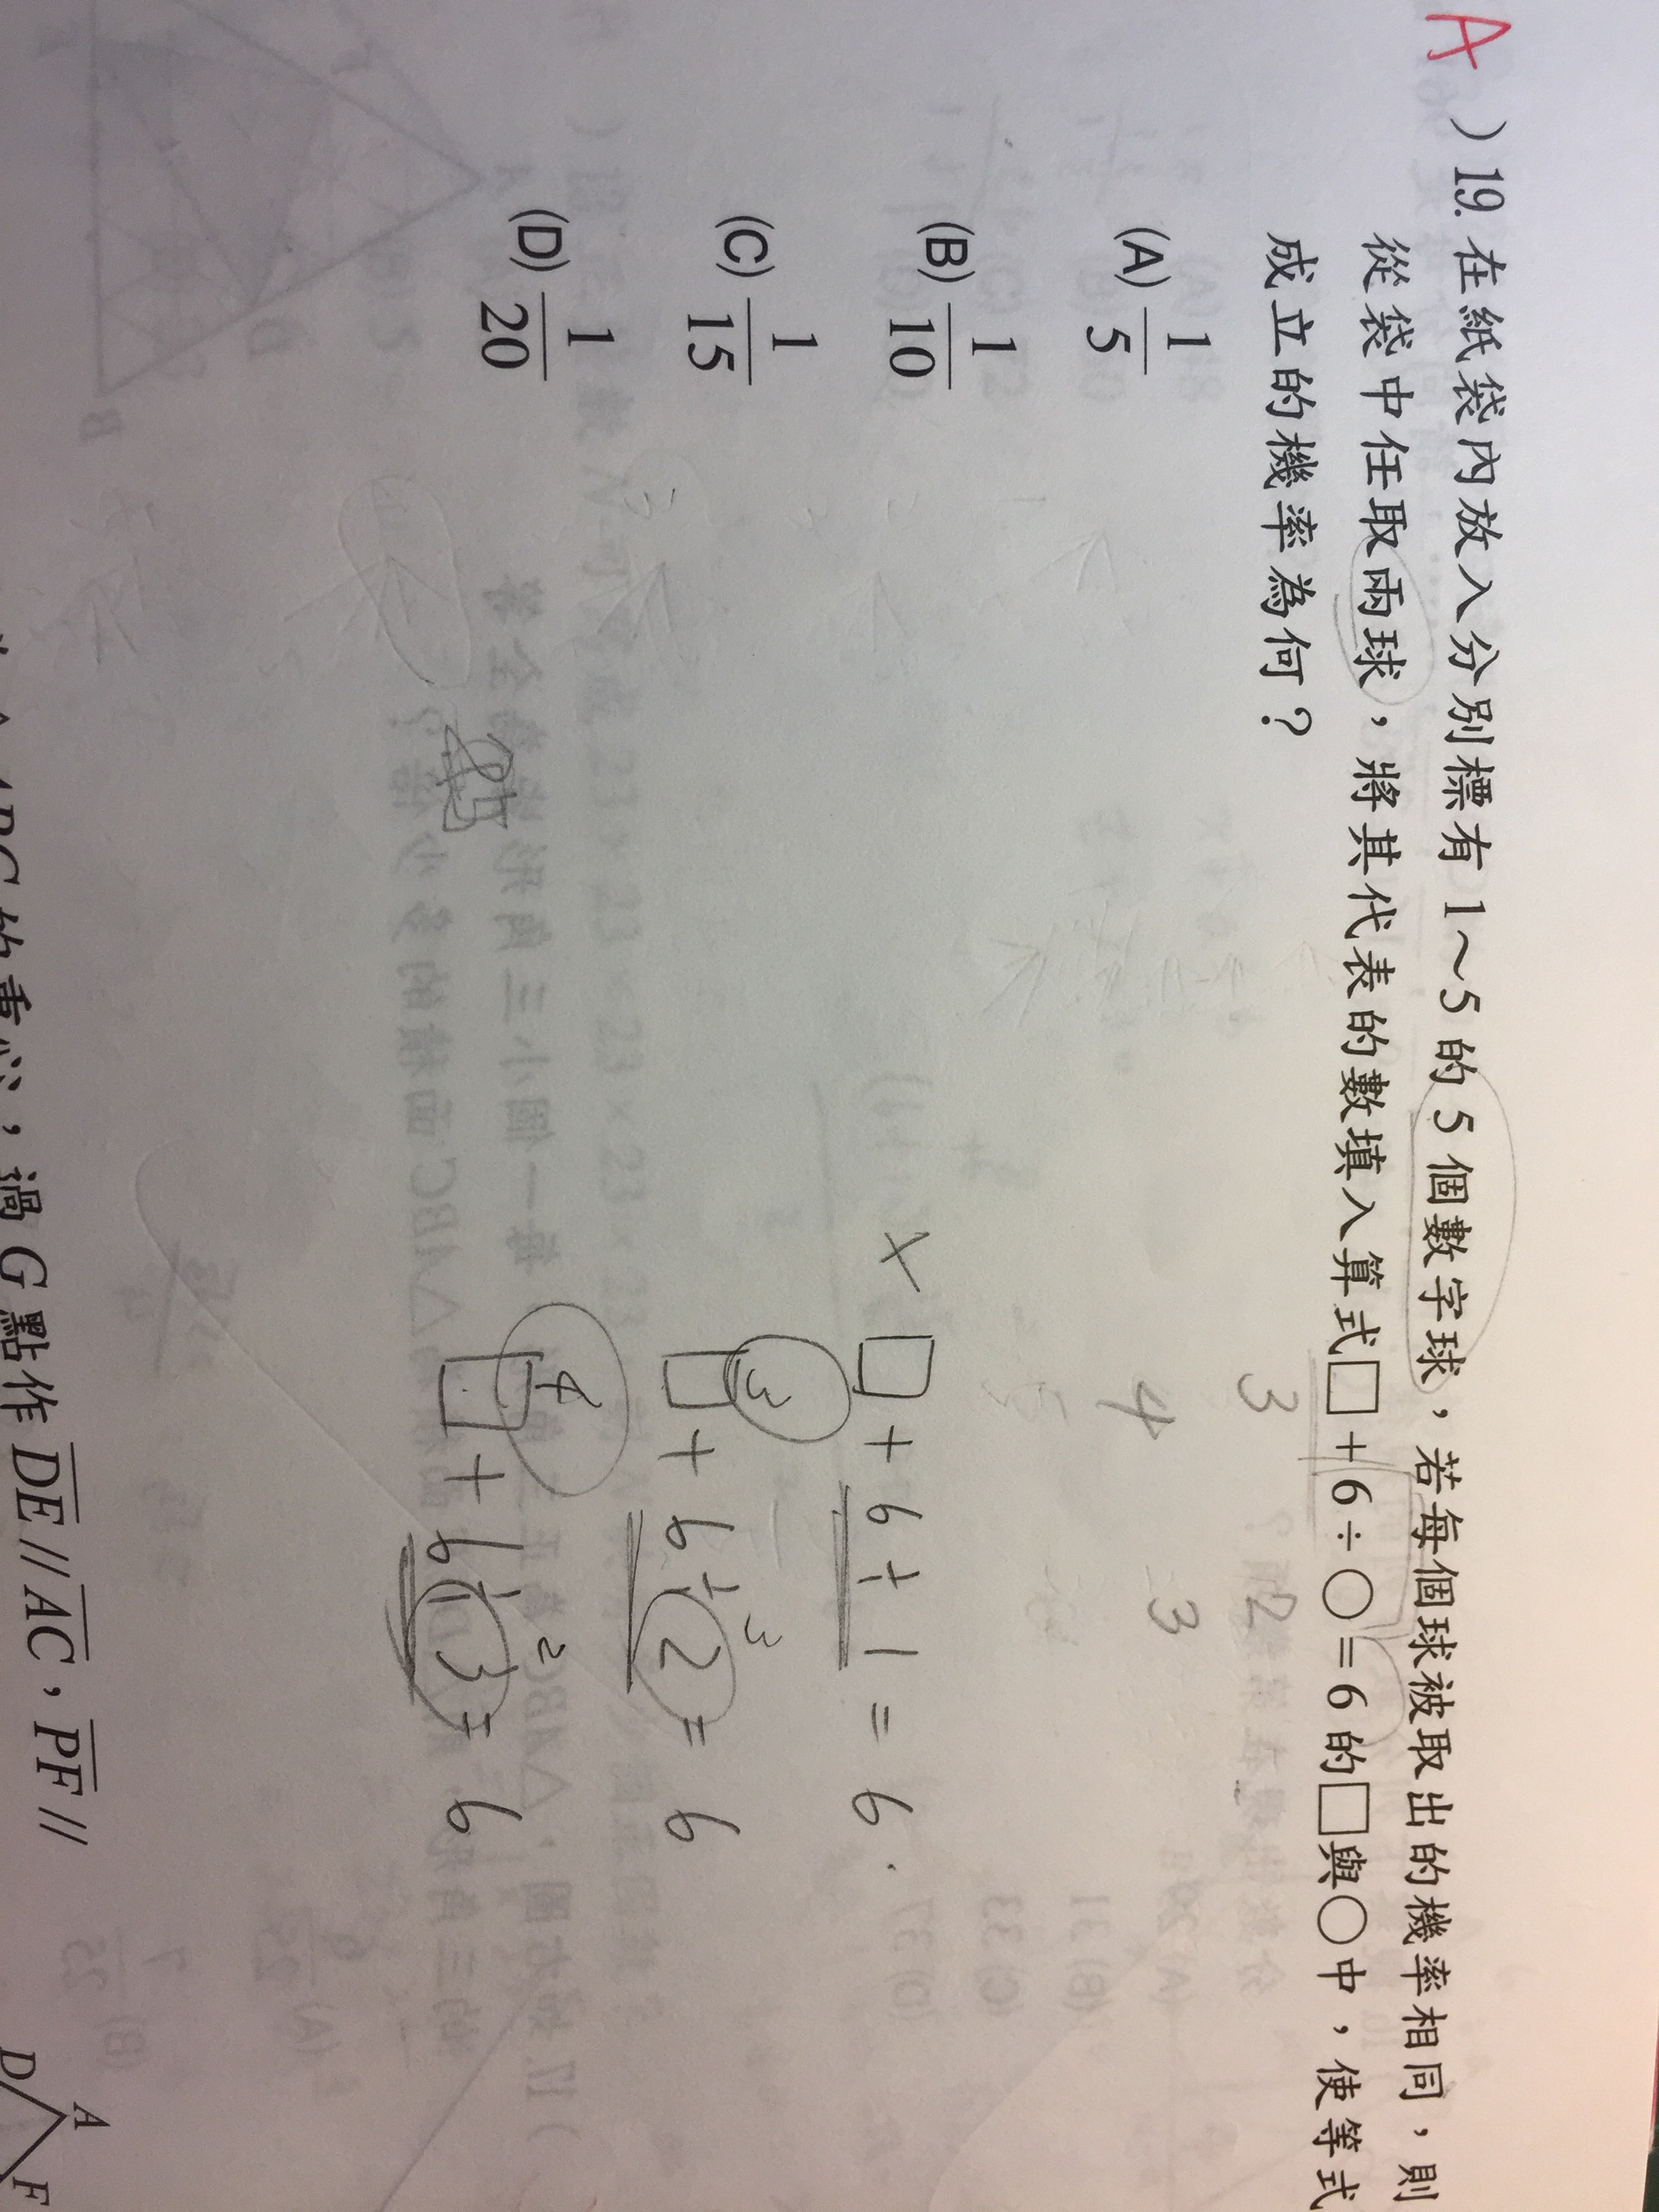 A ) 19. 在紙袋內放入分別標有 1～5 的 5 個數字球，若每個球被取出的機率相同，則
從袋中任取兩球，將其代表的數填入算式□+6÷○=6 的□與○中，使等式
成立的機率為何？
3 2
4 3
(A) 1/5
(B) 1/10
(C) 1/15
(D) 1/20
× □ + 6 ÷ 1 = 6
3
□ + 6 ÷ 2 = 6
3
4
□ + 6 ÷ 3 = 6
2
的重心，過 G 點作 DE // AC，PF //
A
D
F